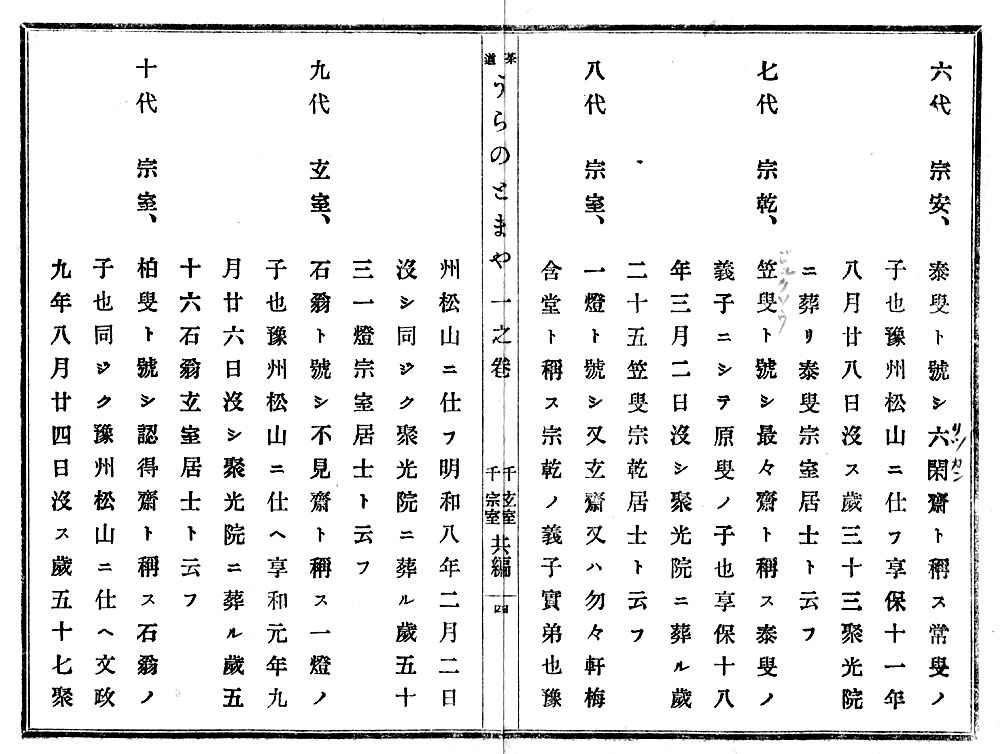 六代　宗安、泰叟ト號シ六閑齋ト稱ス常叟ノ
子也豫州松山ニ仕フ享保十一年
八月廿八日沒ス歲三十三聚光院
ニ葬リ泰叟宗室居士ト云フ
七代　宗乾、笠叟ト號シ最々齋ト稱ス泰叟ノ
義子ニシテ原叟ノ子也享保十八
年三月二日沒シ聚光院ニ葬ル歲
二十五笠叟宗乾居士ト云フ
八代　宗室、一燈ト號シ又玄齋又ハ勿々軒梅
含堂ト稱ス宗乾ノ義子實弟也豫
茶道うらのとまや 一之卷 千玄室 千宗室 共編 四
州松山ニ仕フ明和八年二月二日
沒シ同ジク聚光院ニ葬ル歲五十
三一燈宗室居士ト云フ
九代　玄室、石翁ト號シ不見齋ト稱ス一燈ノ
子也豫州松山ニ仕ヘ享和元年九
月廿六日沒シ聚光院ニ葬ル歲五
十六石翁玄室居士ト云フ
十代　宗室、柏叟ト號シ認得齋ト稱ス石翁ノ
子也同ジク豫州松山ニ仕ヘ文政
九年八月廿四日沒ス歲五十七聚